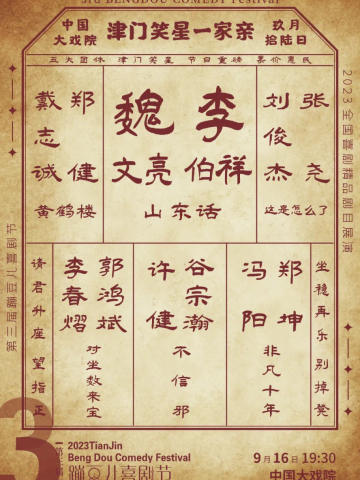 3rd BENGDOU COMEDY Festival
中国
大戏院
津门笑星一家亲
玖月
拾陆日
五大团体 津门笑星 节目重磅 票价惠民
戴志诚 郑健
黄鹤楼
魏文亮 李伯祥
山东话
刘俊杰 张尧
这是怎么了
请君升座 望指正
李春熠 郭鸿斌
对坐数来宝
许健 谷宗瀚
不信邪
冯阳 郑坤
非凡十年
坐稳再乐 别掉凳
第三届蹦豆儿喜剧节
2023 全国喜剧精品剧目展演
3
2023TianJin
Beng Dou Comedy Festival
蹦豆儿喜剧节
9月16日 19:30
中国大戏院